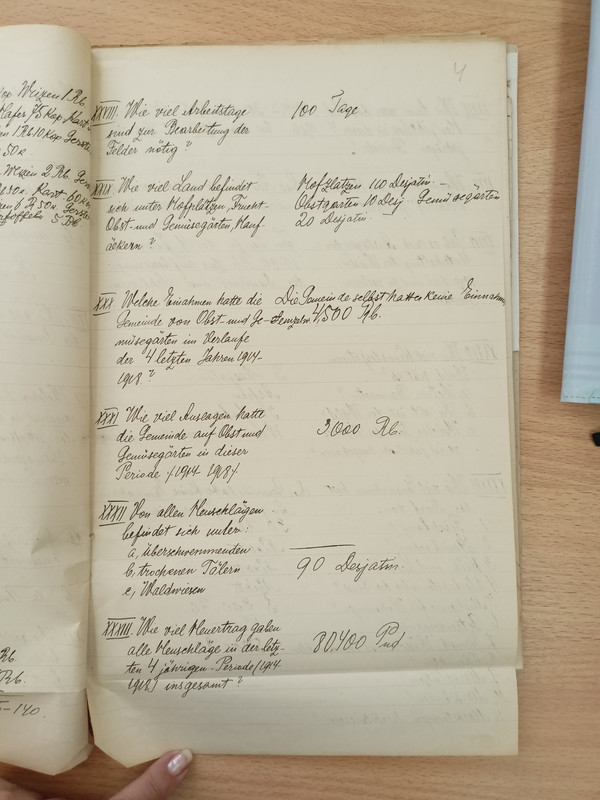 4
Weizen 1 Rb.
Hafer 75 Kop. Kart-
1 Rb 10 Kop. Gerste
50 K
Weizen 2 Rb.
Kart. 60 K.
50 K. Gerste
5 Rb
Rb.
Rb.
-140.
XXVIII. Wie viel Arbeitstage
sind zur Bearbeitung der
Felder nötig?
100 Tage
XXIX Wie viel Land befindet
sich unter Hofplätzen, Frucht-
Obst- und Gemüsegärten, Hanf-
äckern?
Hofplätzen 110 Desjatin. –
Obstgärten 10 Desj. Gemüsegärten
20 Desjatin.
XXX Welche Einahmen hatte die
Gemeinde von Obst- und Ge-
müsegärten im Verlaufe
der 4 letzten Jahren 1914-
1918?
Die Gemeinde selbst hatten keine Einnahm
4,500 Rb.
XXXI Wie viel Auslagen hatte
die Gemeinde auf Obst und
Gemüsegärten in dieser
Periode /1914-1918/
3000 Rb.
XXXII Von allen Heuschlägen
befindet sich unter:
a, überschwemmenden
b, trockenen Tälern
c, Waldwiesen
90 Desjatin.
XXXIII. Wie viel Heuertrag gaben
alle Heuschläge in der letz-
ten 4 jährigen-Periode (1914-
1918) insgesamt?
80400 Pud